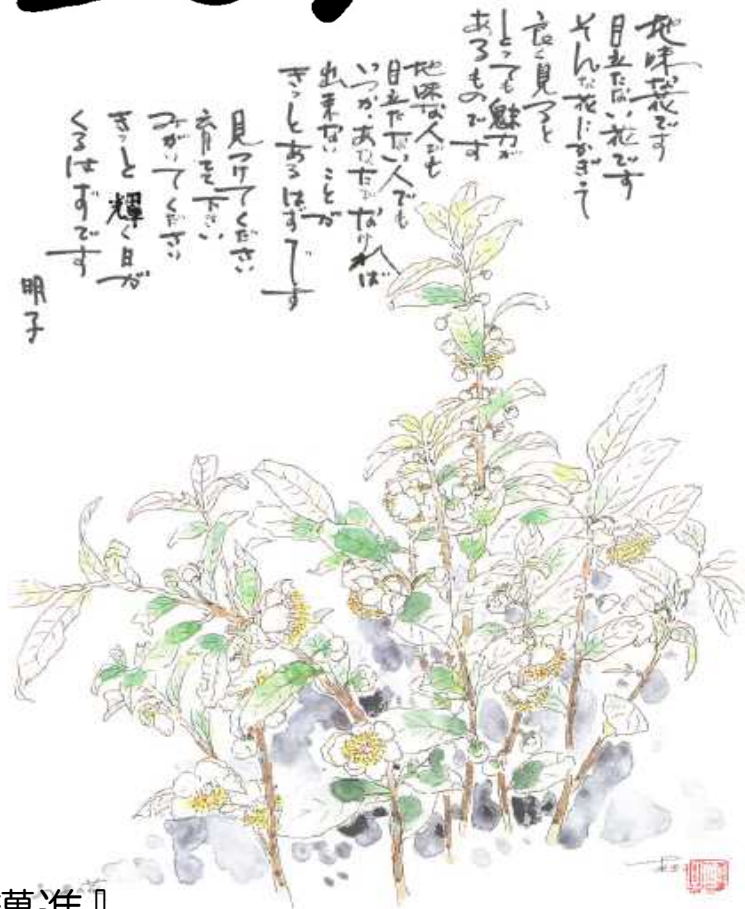 地味な花です
目立たない花です
そんな花にかぎって
良く見ると
とっても魅力が
あるものです
地味な人でも
目立たない人でも
いつか、あなたでなければ
出来ないことが
きっとあるはずです
見つけてください
育てて下さい
みがいてください
きっと輝く日が
くるはずです
明子
進』